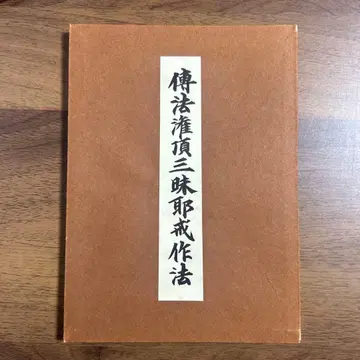 傳法灌頂三昧耶戒作法